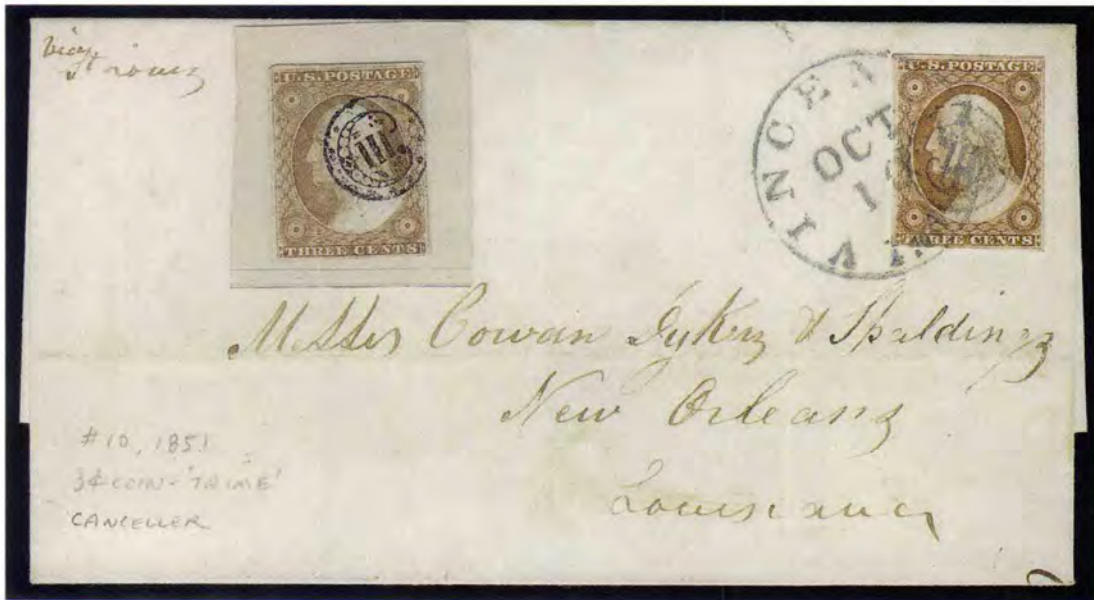 St Louis
U.S. POSTAGE
III
THREE CENTS
OCT
U.S. POSTAGE
THREE CENTS
Messrs Cowan Dykers & Spalding
New Orleans
Louisiana
#10, 1851
3¢ COIN-'TRIME'
CANCELLER